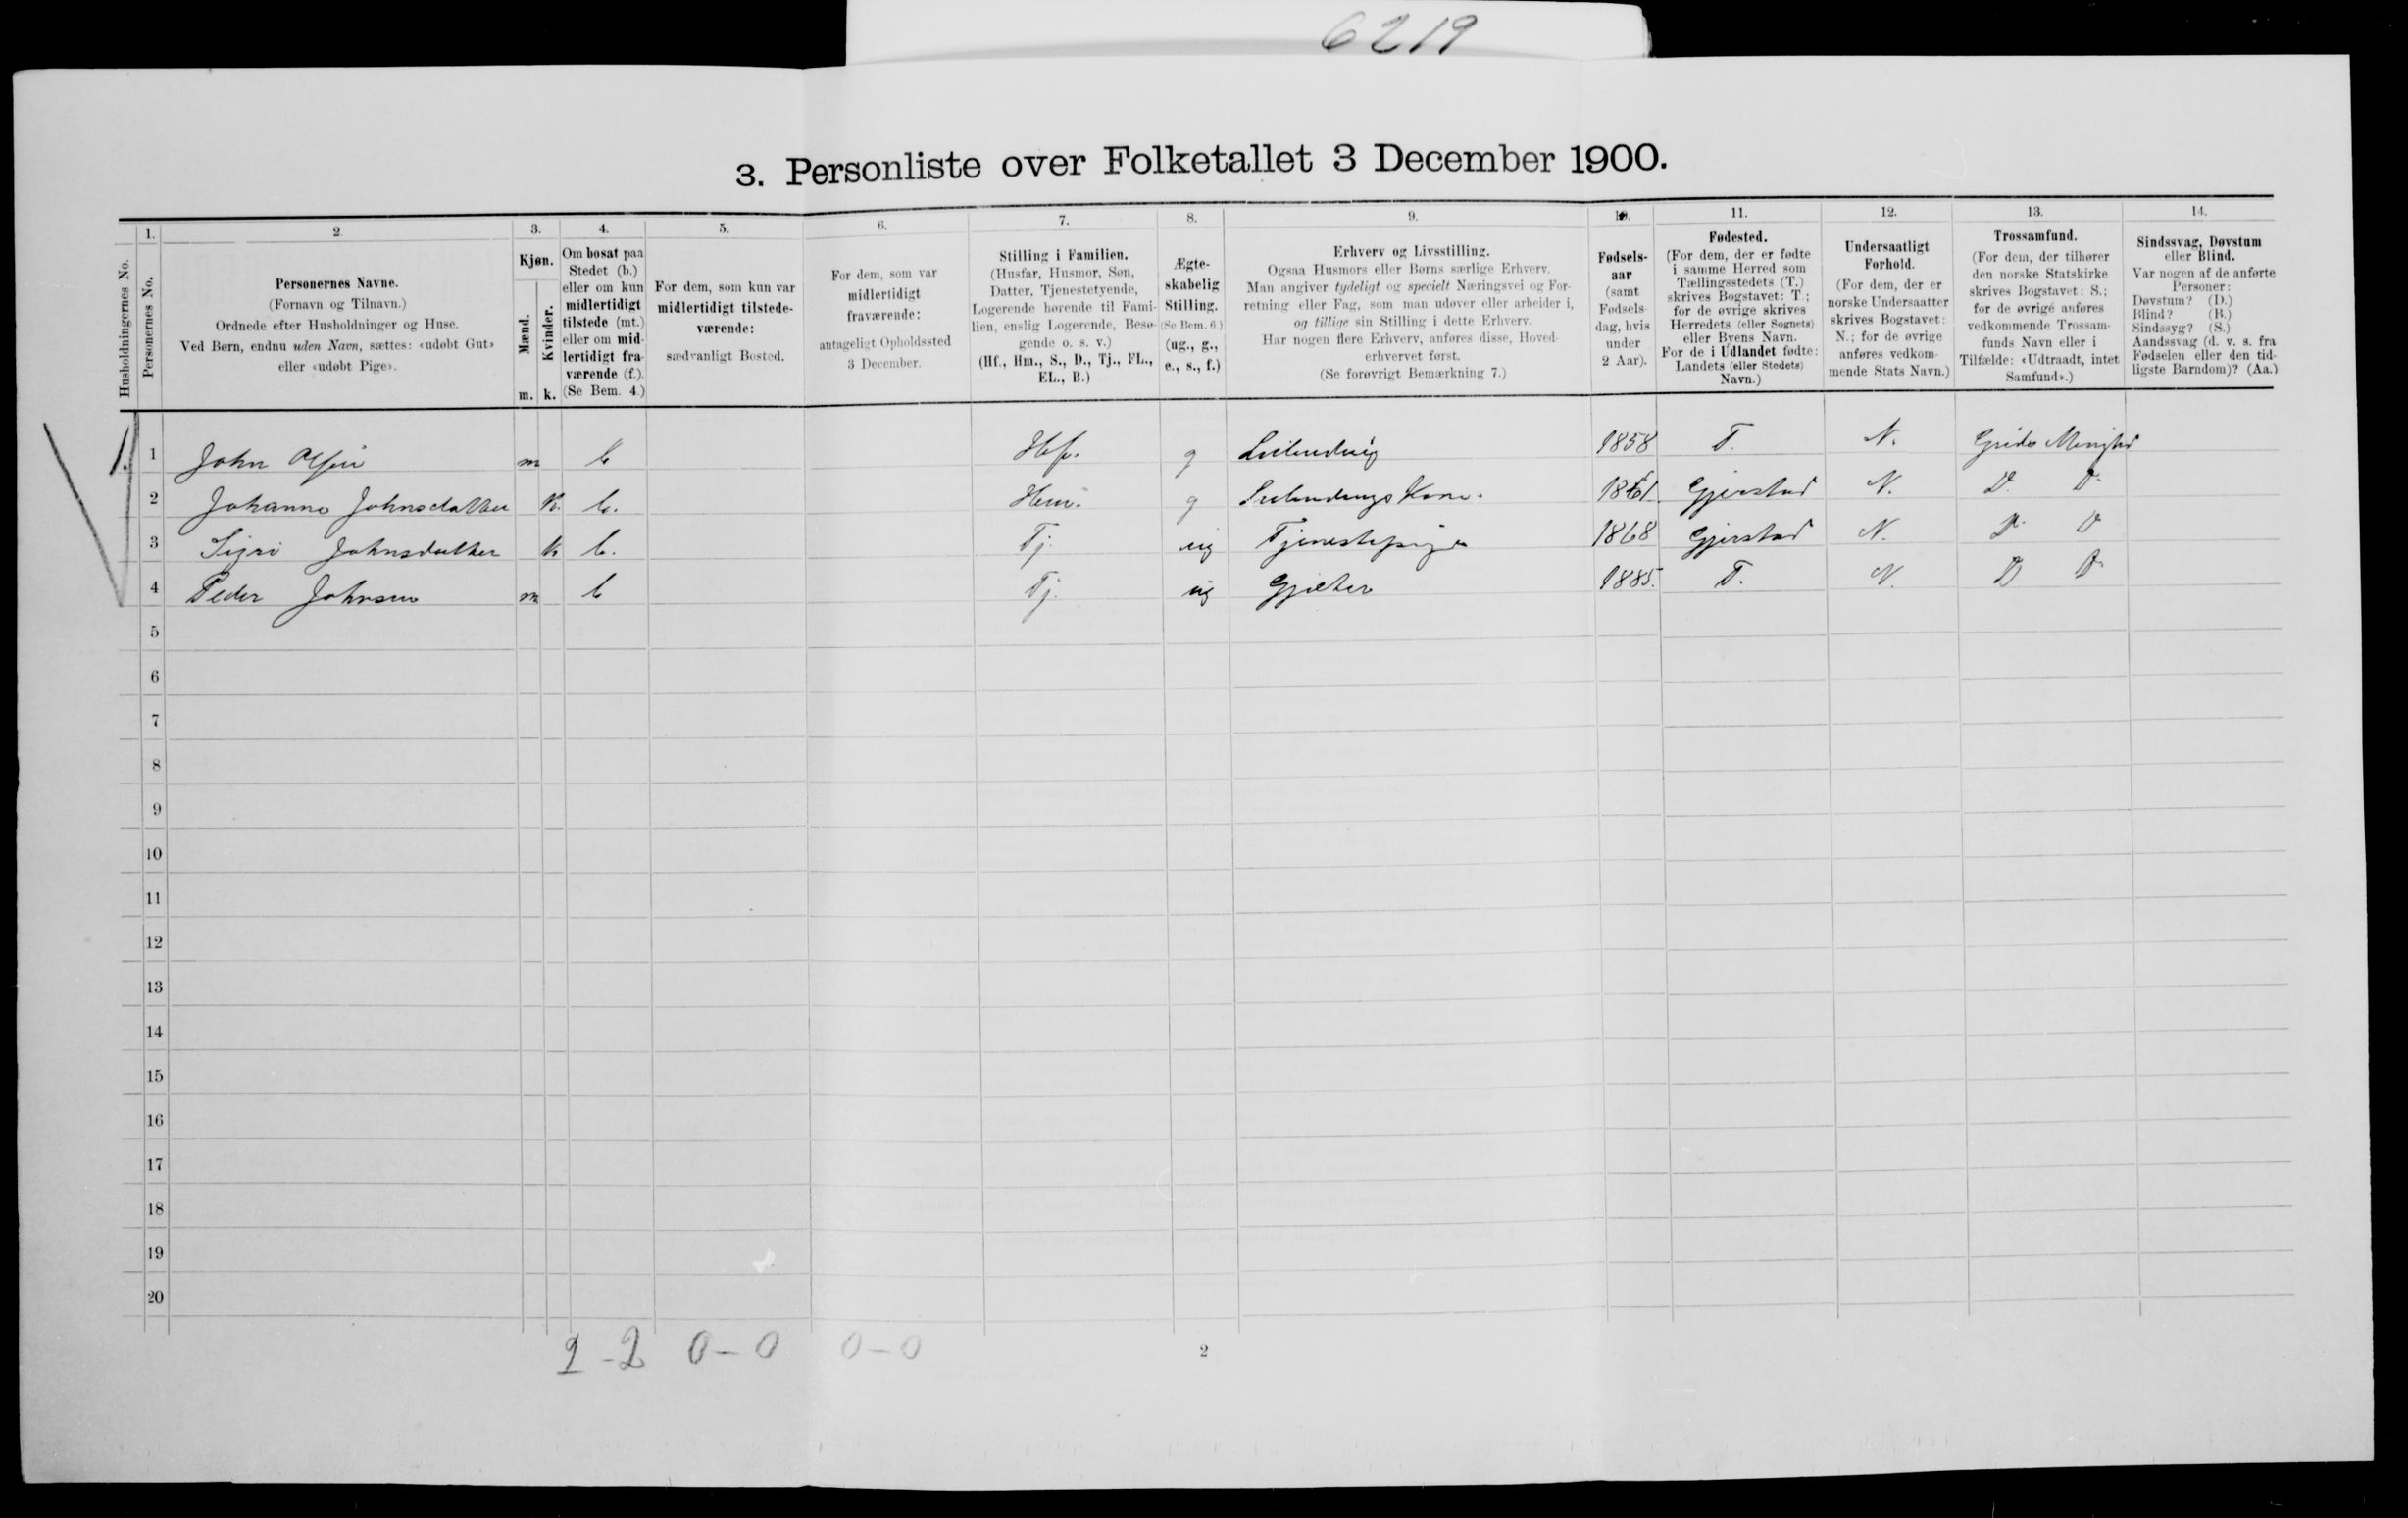 6219
3. Personliste over Folketallet 3 December 1900.
1. 2. 3. 4. 5. 6. 7. 8. 9. 10. 11. 12. 13. 14.
Husholdningernes No.
Personernes No.
Personernes Navne.
(Fornavn og Tilnavn.)
Ordnede efter Husholdninger og Huse.
Ved Børn, endnu uden Navn, sættes: «udøbt Gut»
eller «udøbt Pige».
Kjøn.
Mænd.
Kvinder.
m. k.
Om bosat paa
Stedet (b.)
eller om kun
midlertidigt
tilstede (mt.)
eller om mid-
lertidigt fra-
værende (f.).
(Se Bem. 4.)
For dem, som kun var
midlertidigt tilstede-
værende:
sædvanligt Bosted.
For dem, som var
midlertidigt
fraværende:
antageligt Opholdssted
3 December.
Stilling i Familien.
(Husfar, Husmor, Søn,
Datter, Tjenestetyende,
Logerende hørende til Fami-
lien, enslig Logerende, Besø-
gende o. s. v.)
(Hf., Hm., S., D., Tj., FL.,
EL., B.)
Ægte-
skabelig
Stilling.
(Se Bem. 6.)
(ug., g.,
e., s., f.)
Erhverv og Livsstilling.
Ogsaa Husmors eller Børns særlige Erhverv.
Man angiver tydeligt og specielt Næringsvei og For-
retning eller Fag, som man udøver eller arbeider i,
og tillige sin Stilling i dette Erhverv.
Har nogen flere Erhverv, anføres disse, Hoved-
erhvervet først.
(Se forøvrigt Bemærkning 7.)
Fødsels-
aar
(samt
Fødsels-
dag, hvis
under
2 Aar).
Fødested.
(For dem, der er fødte
i samme Herred som
Tællingsstedets (T.)
skrives Bogstavet: T.;
for de øvrige skrives
Herredets (eller Sognets)
eller Byens Navn.
For de i Udlandet fødte:
Landets (eller Stedets)
Navn.)
Undersaatligt
Forhold.
(For dem, der er
norske Undersaatter
skrives Bogstavet:
N.; for de øvrige
anføres vedkom-
mende Stats Navn.)
Trossamfund.
(For dem, der tilhører
den norske Statskirke
skrives Bogstavet: S.;
for de øvrige anføres
vedkommende Trossam-
funds Navn eller i
Tilfælde: «Udtraadt, intet
Samfund».)
Sindssvag, Døvstum
eller Blind.
Var nogen af de anførte
Personer:
Døvstum? (D.)
Blind? (B.)
Sindssyg? (S.)
Aandssvag (d. v. s. fra
Fødselen eller den tid-
ligste Barndom)? (Aa.)
1. 1 John m b Hf. g 1858 T. N.
2 Johanne Johnsdatter k. b. Hm. g 1861. Gjerstad N. D. D.
3 Sigri Johnsdatter k b. Tj. ug Tjenestepige 1868 Gjerstad N. D. D
4 Peder Johnsen m b Tj. ug Gjæter 1885. T. N. D D
5
6
7
8
9
10
11
12
13
14
15
16
17
18
19
20
2-2 0-0 0-0
2